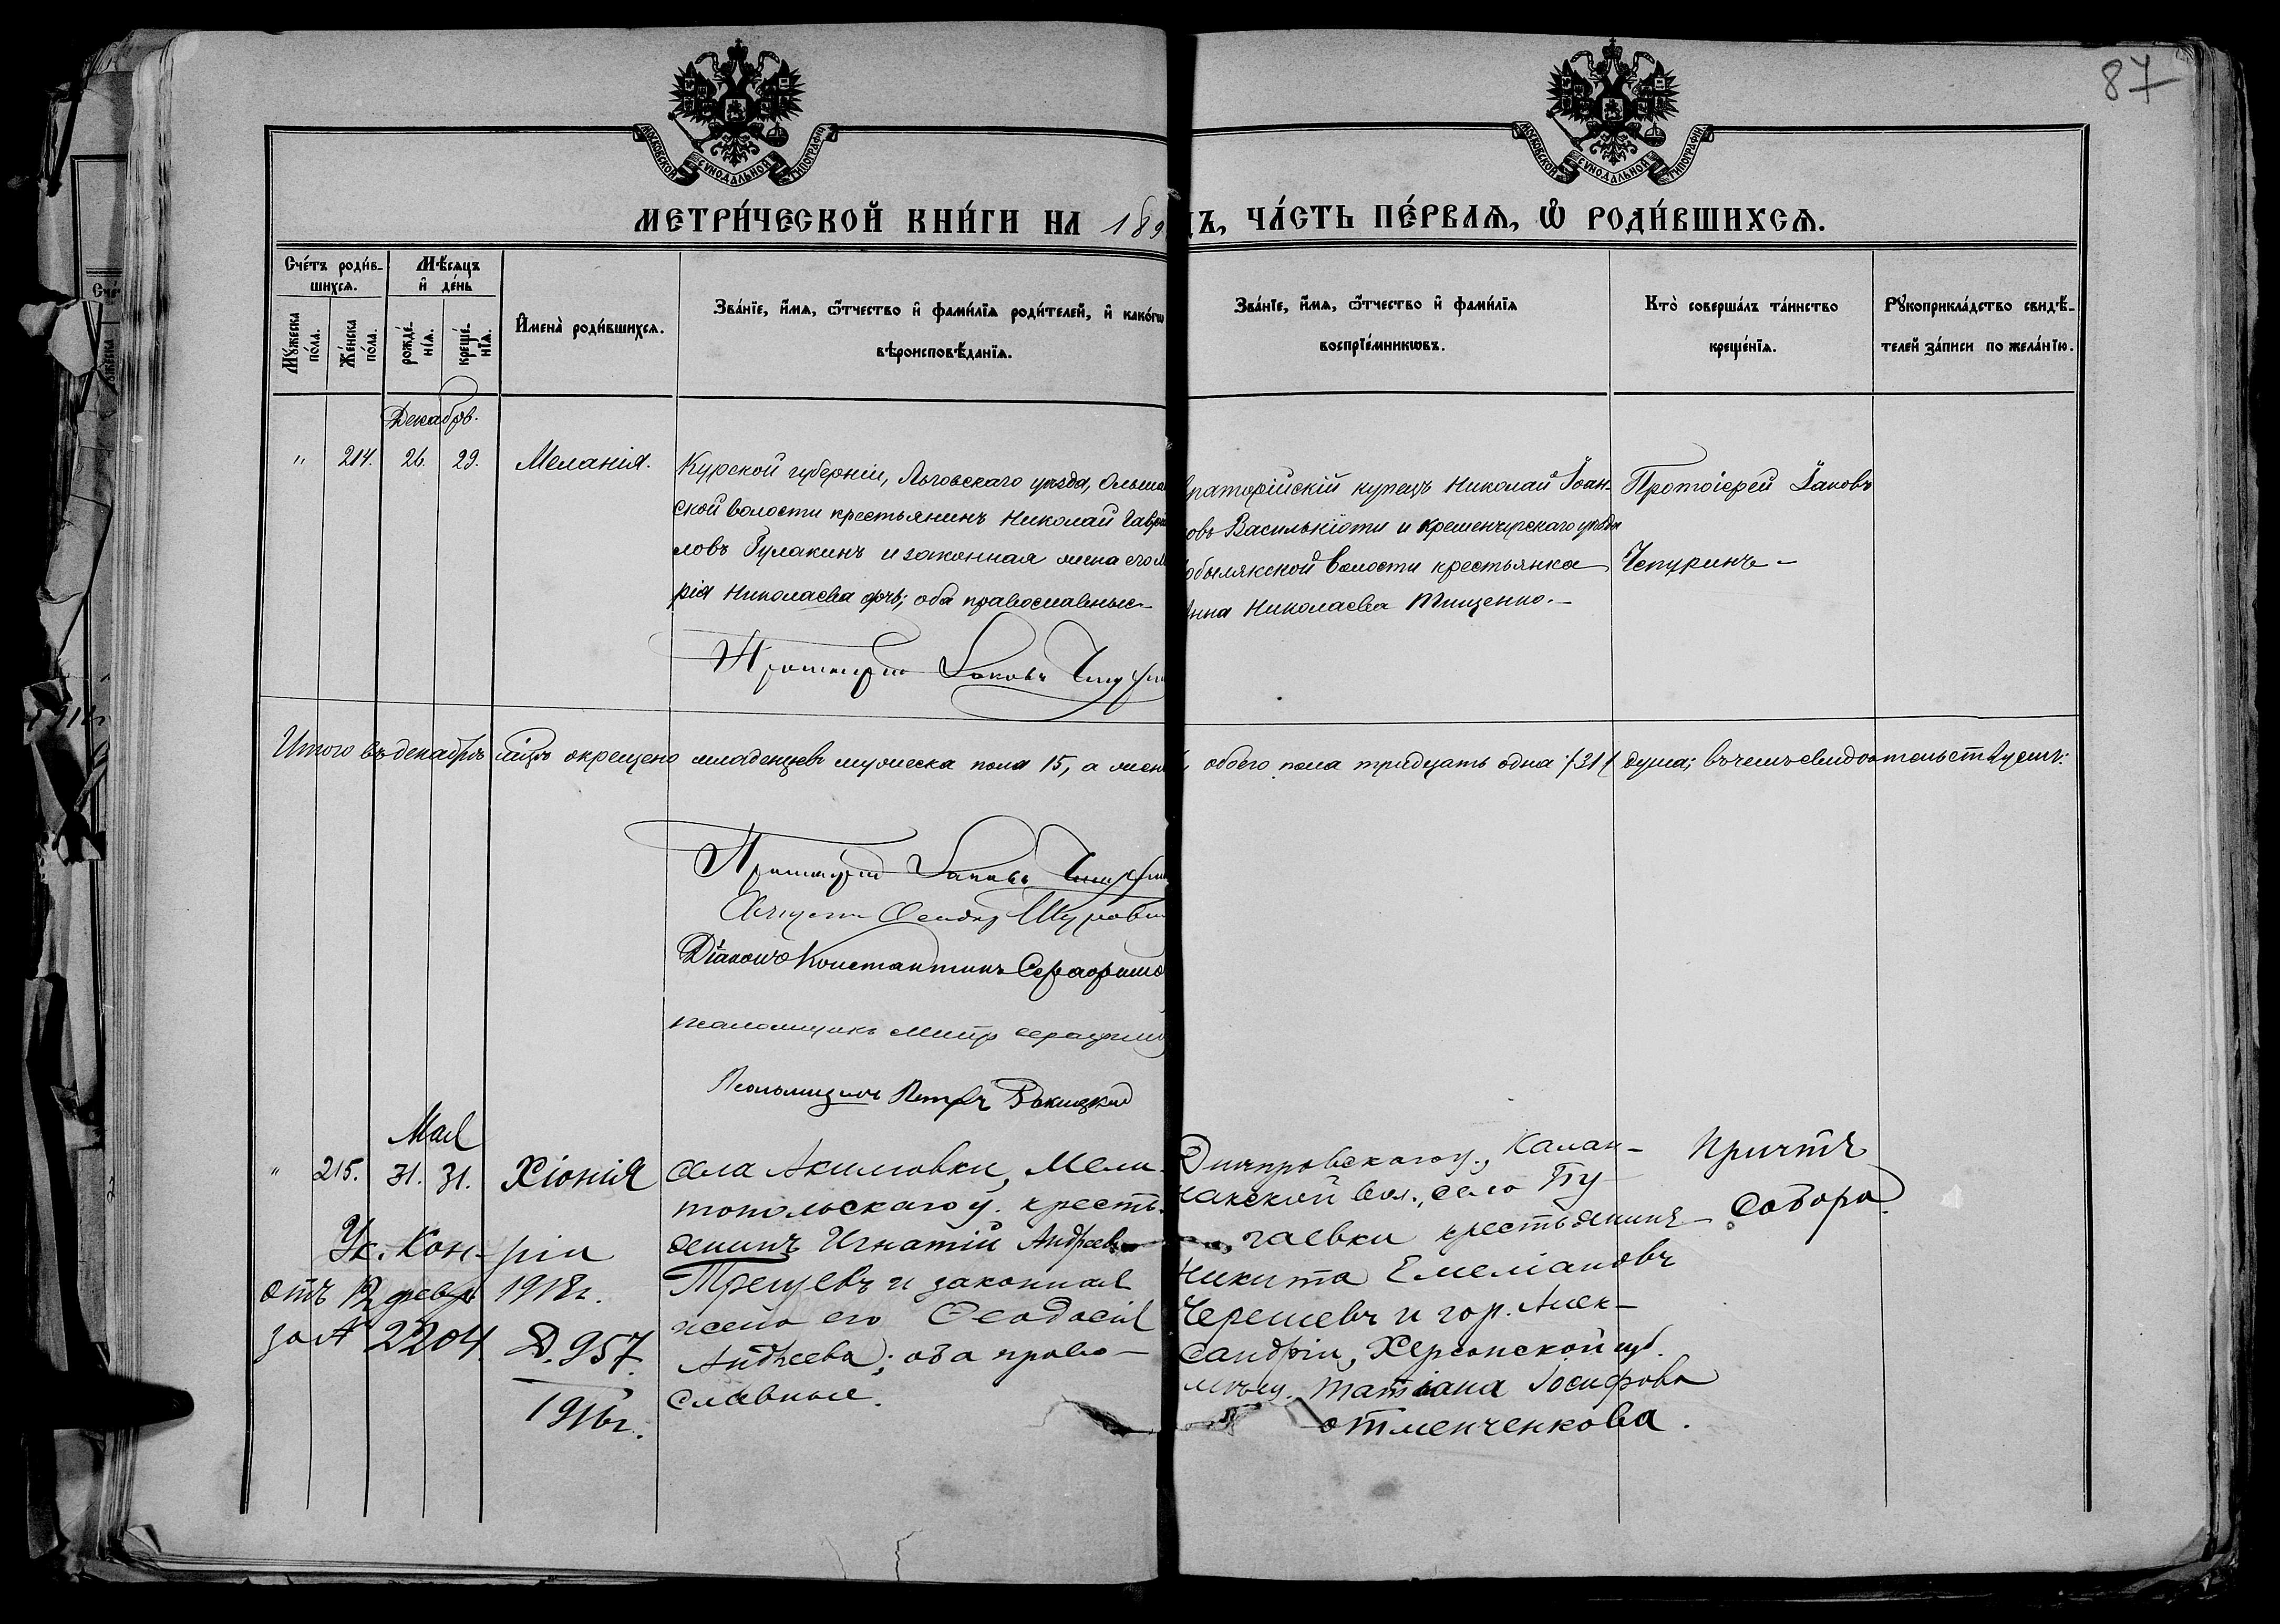 87
МОСКОВСКОЙ СУНОДАЛЬНОЙ ТИПОГРАФІИ
МОСКОВСКОЙ СУНОДАЛЬНОЙ ТИПОГРАФІИ
МЕТРИ́ЧЕСКОЙ КНИ́ГИ НА 189
ЧА́СТЬ ПЕ́РВАѦ, Ѡ РОДИ́ВШИХСѦ.
Сче́тъ роди́в-
шихсѧ.
Мѣ́сѧцъ
и҆ де́нь
Мꙋ́жеска
по́ла.
Же́нска
по́ла.
рожде́-
нїѧ.
креще́-
нїѧ.
И҆мена̀ роди́вшихсѧ.
Зва́нїе, и҆́мѧ, ѻ҆́тчество и҆ фами́лїѧ роди́телей, и҆ како́гѡ
вѣроисповѣ́данїѧ.
Зва́нїе, и҆́мѧ, ѻ҆́тчество и҆ фами́лїѧ
воспрїе́мникѡвъ.
Кто̀ соверша́лъ та́инство
креще́нїѧ.
Рꙋкоприкла́дство свидѣ́-
телей за́писи по жела́нїю.
Декабрь.
" 214. 26. 29. Меланія.
Курской губерніи, Льговскаго уѣзда, Ольша
ской волости крестьянинъ Николай Гаври
ловъ Гулакинъ и законная жена его М
рія Николаева дочь; оба православные.-
Протоіерей Іаковъ Чепурин
враторійскій купецъ Николай Іоан-
овъ Василькіоти и Кременчугскаго уѣзда
обылякской волости крестьянка
нна Николаева Тищенко.-
Протоіерей Іаковъ
Чепуринъ-
Итого въ декабрѣ мцѣ окрещено младенцевъ мужеска пола 15, а жен
обоего пола тридцать одна /31/ душа; въ чемъ свидѣтельствуемъ:
Протоіерей Іаковъ Чепурин
Діаконъ Константинъ Серафимо
псаломщикъ Митр Серафимо
Псаломщикъ Петръ
Мая
" 215. 31. 31. Хіонія
Села Акимовки, Мели-
топольскаго у. кресть-
янинъ Игнатій Андреевъ
Трещевъ и законная
жена его Ѳеодосія
Андреева; оба право-
славные.
Днѣпровскаго у., Калан-
чакской вол., села Бу-
гаевки крестьянинъ
Никита Емеліановъ
Черешевъ и гор. Алек-
сандріи, Херсонской губ.
мѣщ. Татіана Іосифова
отменченкова.
Причтъ
Собора.
Ук. Кон-ріи
отъ 12 февр 1918г.
за № 2204. Д. 957.
1916г.